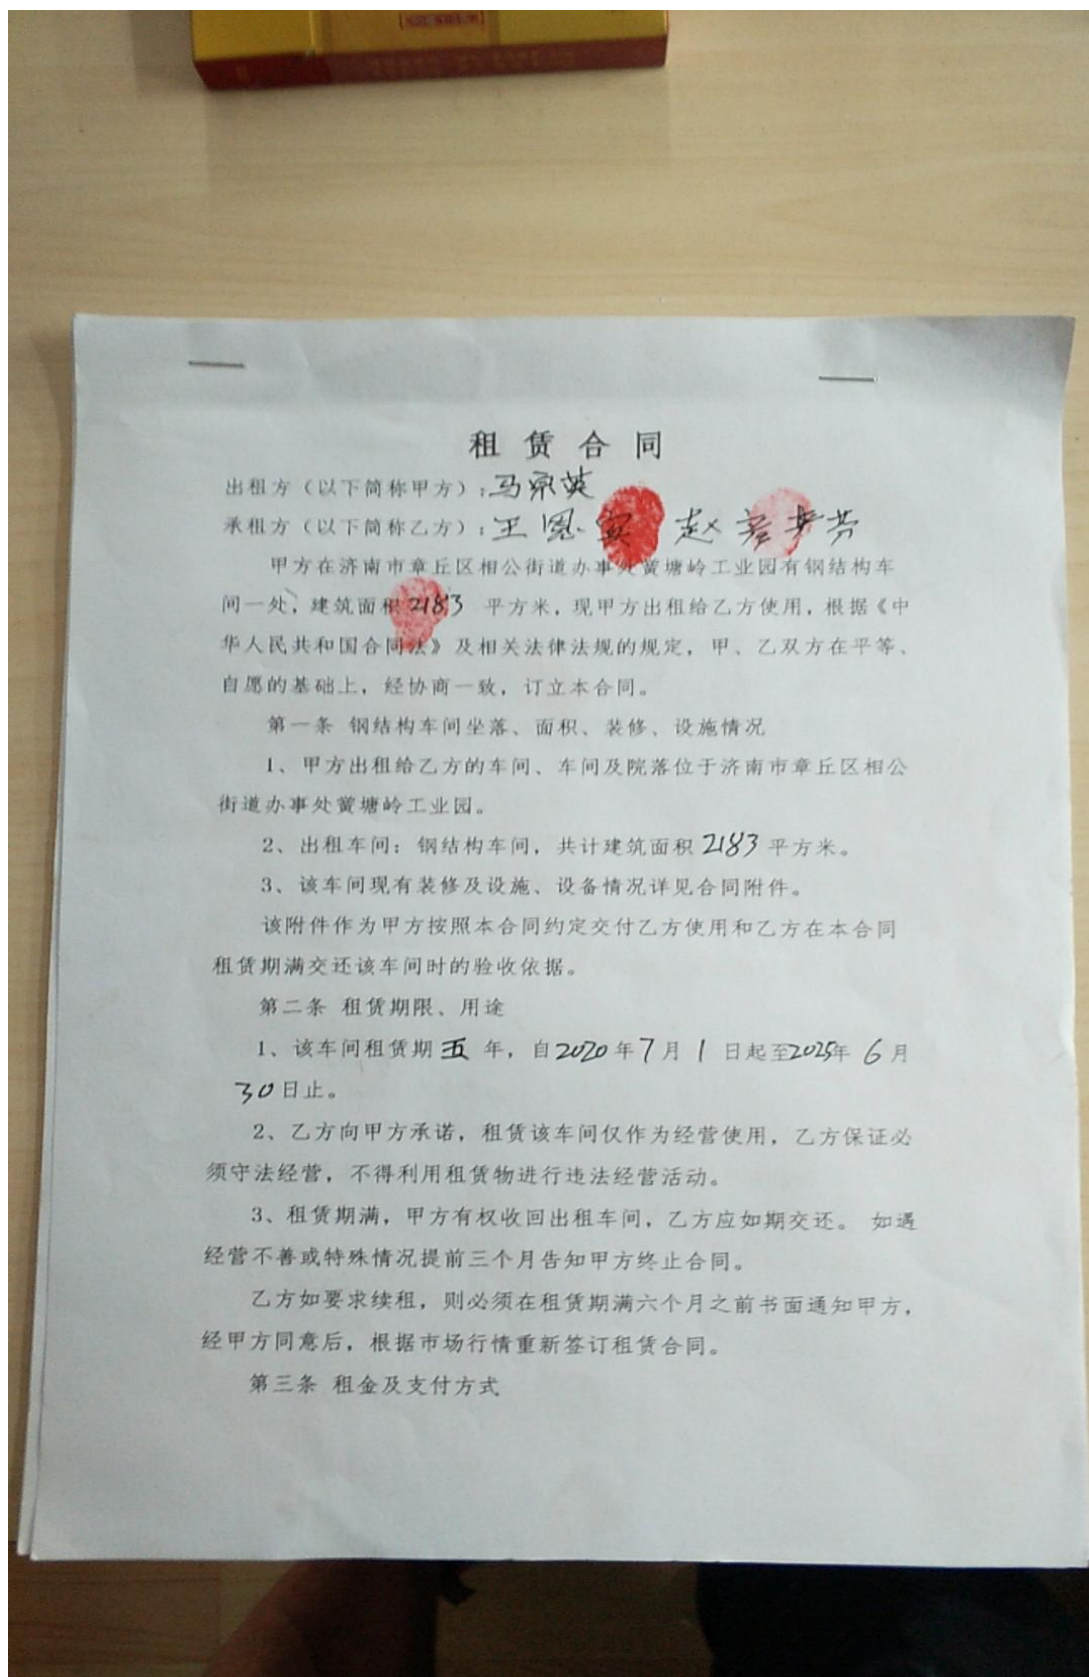 租赁合同
出租方（以下简称甲方）：马京英
承租方（以下简称乙方）：王恩宾 赵彦芳
甲方在济南市章丘区相公街道办事处黄塘岭工业园有钢结构车
间一处，建筑面积2183 平方米，现甲方出租给乙方使用，根据《中
华人民共和国合同法》及相关法律法规的规定，甲、乙双方在平等、
自愿的基础上，经协商一致，订立本合同。
第一条 钢结构车间坐落、面积、装修、设施情况
1、甲方出租给乙方的车间、车间及院落位于济南市章丘区相公
街道办事处黄塘岭工业园。
2、出租车间：钢结构车间，共计建筑面积2183平方米。
3、该车间现有装修及设施、设备情况详见合同附件。
该附件作为甲方按照本合同约定交付乙方使用和乙方在本合同
租赁期满交还该车间时的验收依据。
第二条 租赁期限、用途
1、该车间租赁期五年，自2020年7月1日起至2025年6月
30日止。
2、乙方向甲方承诺，租赁该车间仅作为经营使用，乙方保证必
须守法经营，不得利用租赁物进行违法经营活动。
3、租赁期满，甲方有权收回出租车间，乙方应如期交还。 如遇
经营不善或特殊情况提前三个月告知甲方终止合同。
乙方如要求续租，则必须在租赁期满六个月之前书面通知甲方，
经甲方同意后，根据市场行情重新签订租赁合同。
第三条 租金及支付方式